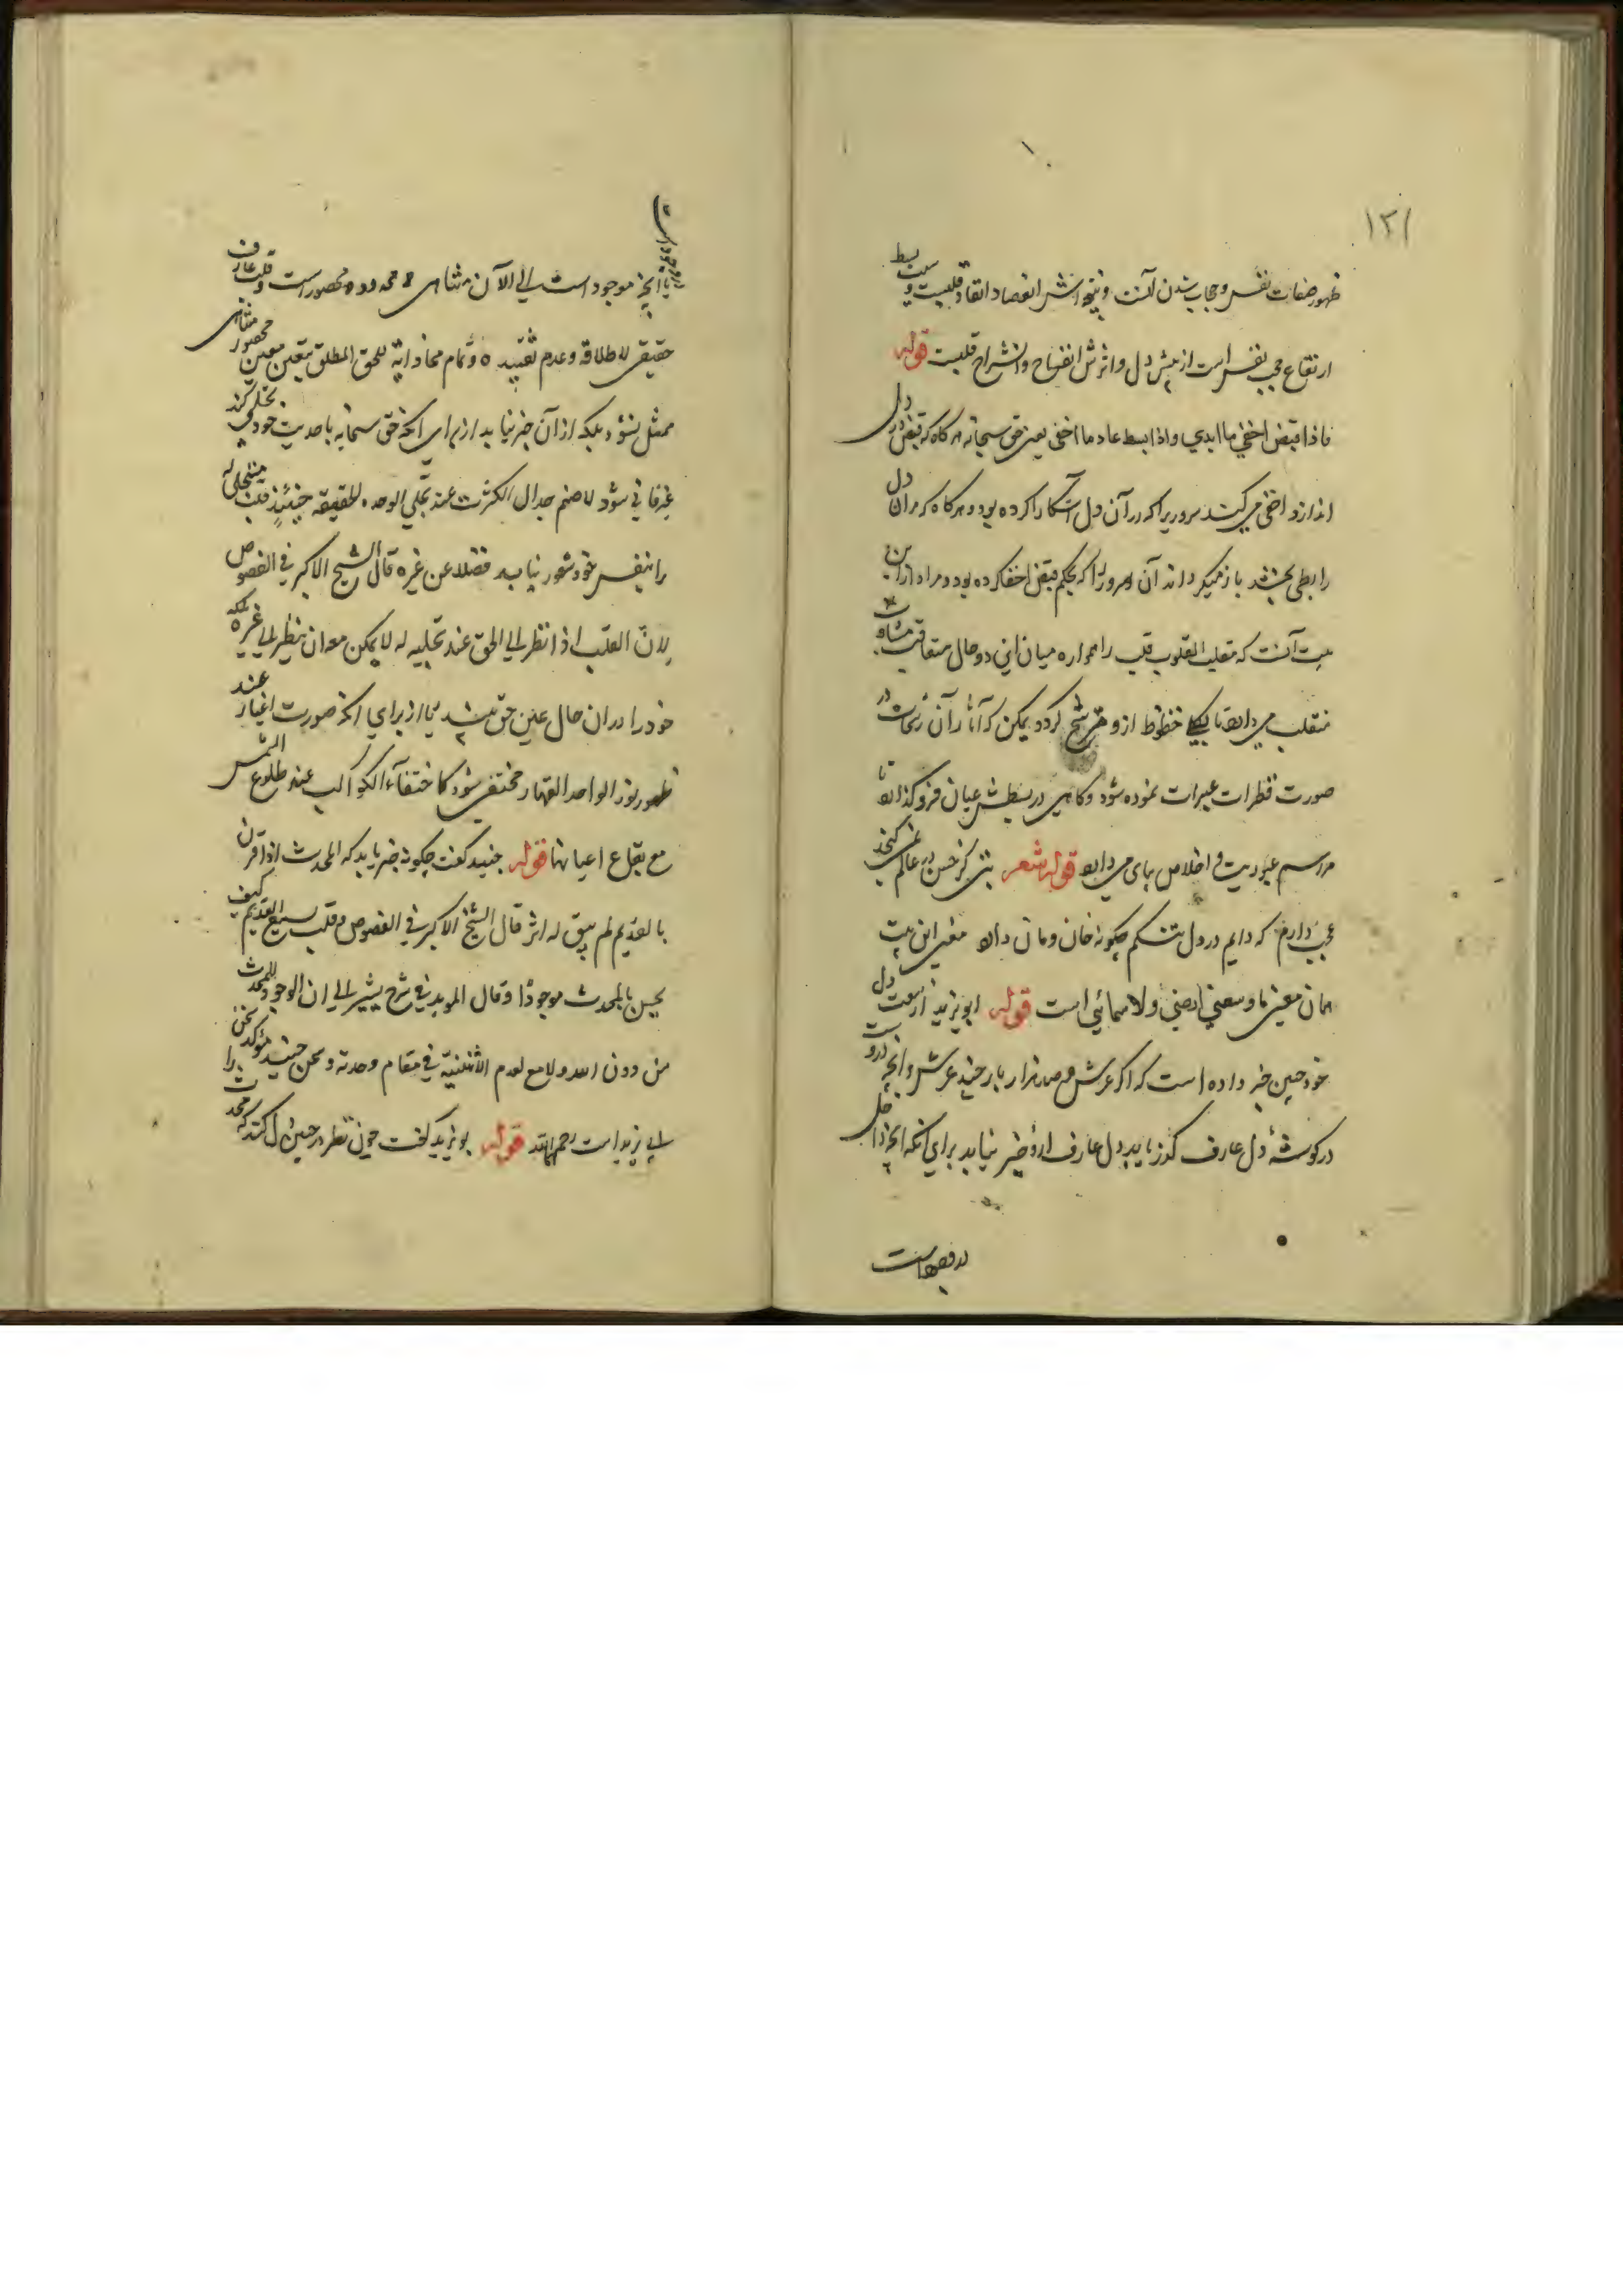 ١٢١
ظهور صفات نفس و حجاب شدن آنست و نتیجه اش انعصاد قلبست و سبب بسط
ارتفاع حجب نفس است از پیش دل و اثرش انفساح و انشراح قلبست قوله
فاذا قبض اخفی ما ابدی و اذا بسط عاد ما اخفی یعنی حق سبحانه هر گاه که قبض در دل
اندازد اخفی می کند سروریرا که در آن دل آشکارا کرده بود و هر گاه که مر آن دل
را بسطی بخشد باز میگرداند آن سروریرا که بحکم قبض اخفا کرده بود و مراد از این
بیت آنست که مقلب القلوب قلب را همواره میان این دو حال متعاقب
منقلب می دارد تا حظوظ ازو مترشح گردد یمکن که آثار آن رشحات در
صورت قطرات عبرات نموده شود و گاهی در بسطش عیان فرو گذارد تا
مراسم عبودیت و اخلاص بپای می دارد قوله شعر بتی کز حسن در عالم نمی گنجد
عجب دارم که دایم در دل تنگم چگونه خان و مان دارد معنی این بیت
همان معنی ما وسعنی ارضی ولا سمائی است قوله ابویزید از سعت دل
خود چنین خبر داده است که اگر عرش و صد هزار بار چند عرش و آنچه دروست
در گوشهٔ دل عارف گذر یابد دل عارف ازو خبر نیابد برای آنکه آنچه داخل
در وجود است
یا آنچه موجود است الی الآن متناهی و محدود و محصور است و قلب عارف
حقیقی لاطلاقه و عدم تقییده و تمام محاذاته للحق المطلق بتعین معین محصور متناهی
ممتلی نشود بلکه از آن خبر نیابد از برای آنکه حق سبحانه باحدیت خود تجلی کند
غیر فانی شود لاضمحلال الکثرت عند تجلی الوحدة الحقیقیه حینئذ قلب متجلی له
را بنفس خود شعور نیابد فضلا عن غیره قال الشیخ الاکبر فی الفصوص
لان القلب اذا نظر الی الحق عند تجلیه له لا یمکن معه ان ینظر الی غیره بلکه
خود را در آن حال عین حق بیند از برای آنکه صورت اغیار عند
ظهور نور الواحد القهار مختفی شود کاختفاء الکواکب عند طلوع الشمس
مع بقاء اعیانها قوله جنید گفت چگونه خبر یابد که المحدث اذا قرن
بالقدیم لم یبق له اثر قال الشیخ الاکبر فی الفصوص و قلب یسع القدیم کیف
یحس بالمحدث موجودًا و قال الموید فی شرح یشیر الی ان الوجود للمحدث
من دون الله ولا مع لعدم الاثنینیة فی مقام وحدته و سخن جنید موکد سخن
ابی یزید است رحمهما الله قوله بویزید گفت چون نظر در حیث